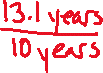 13.1 years
10 years